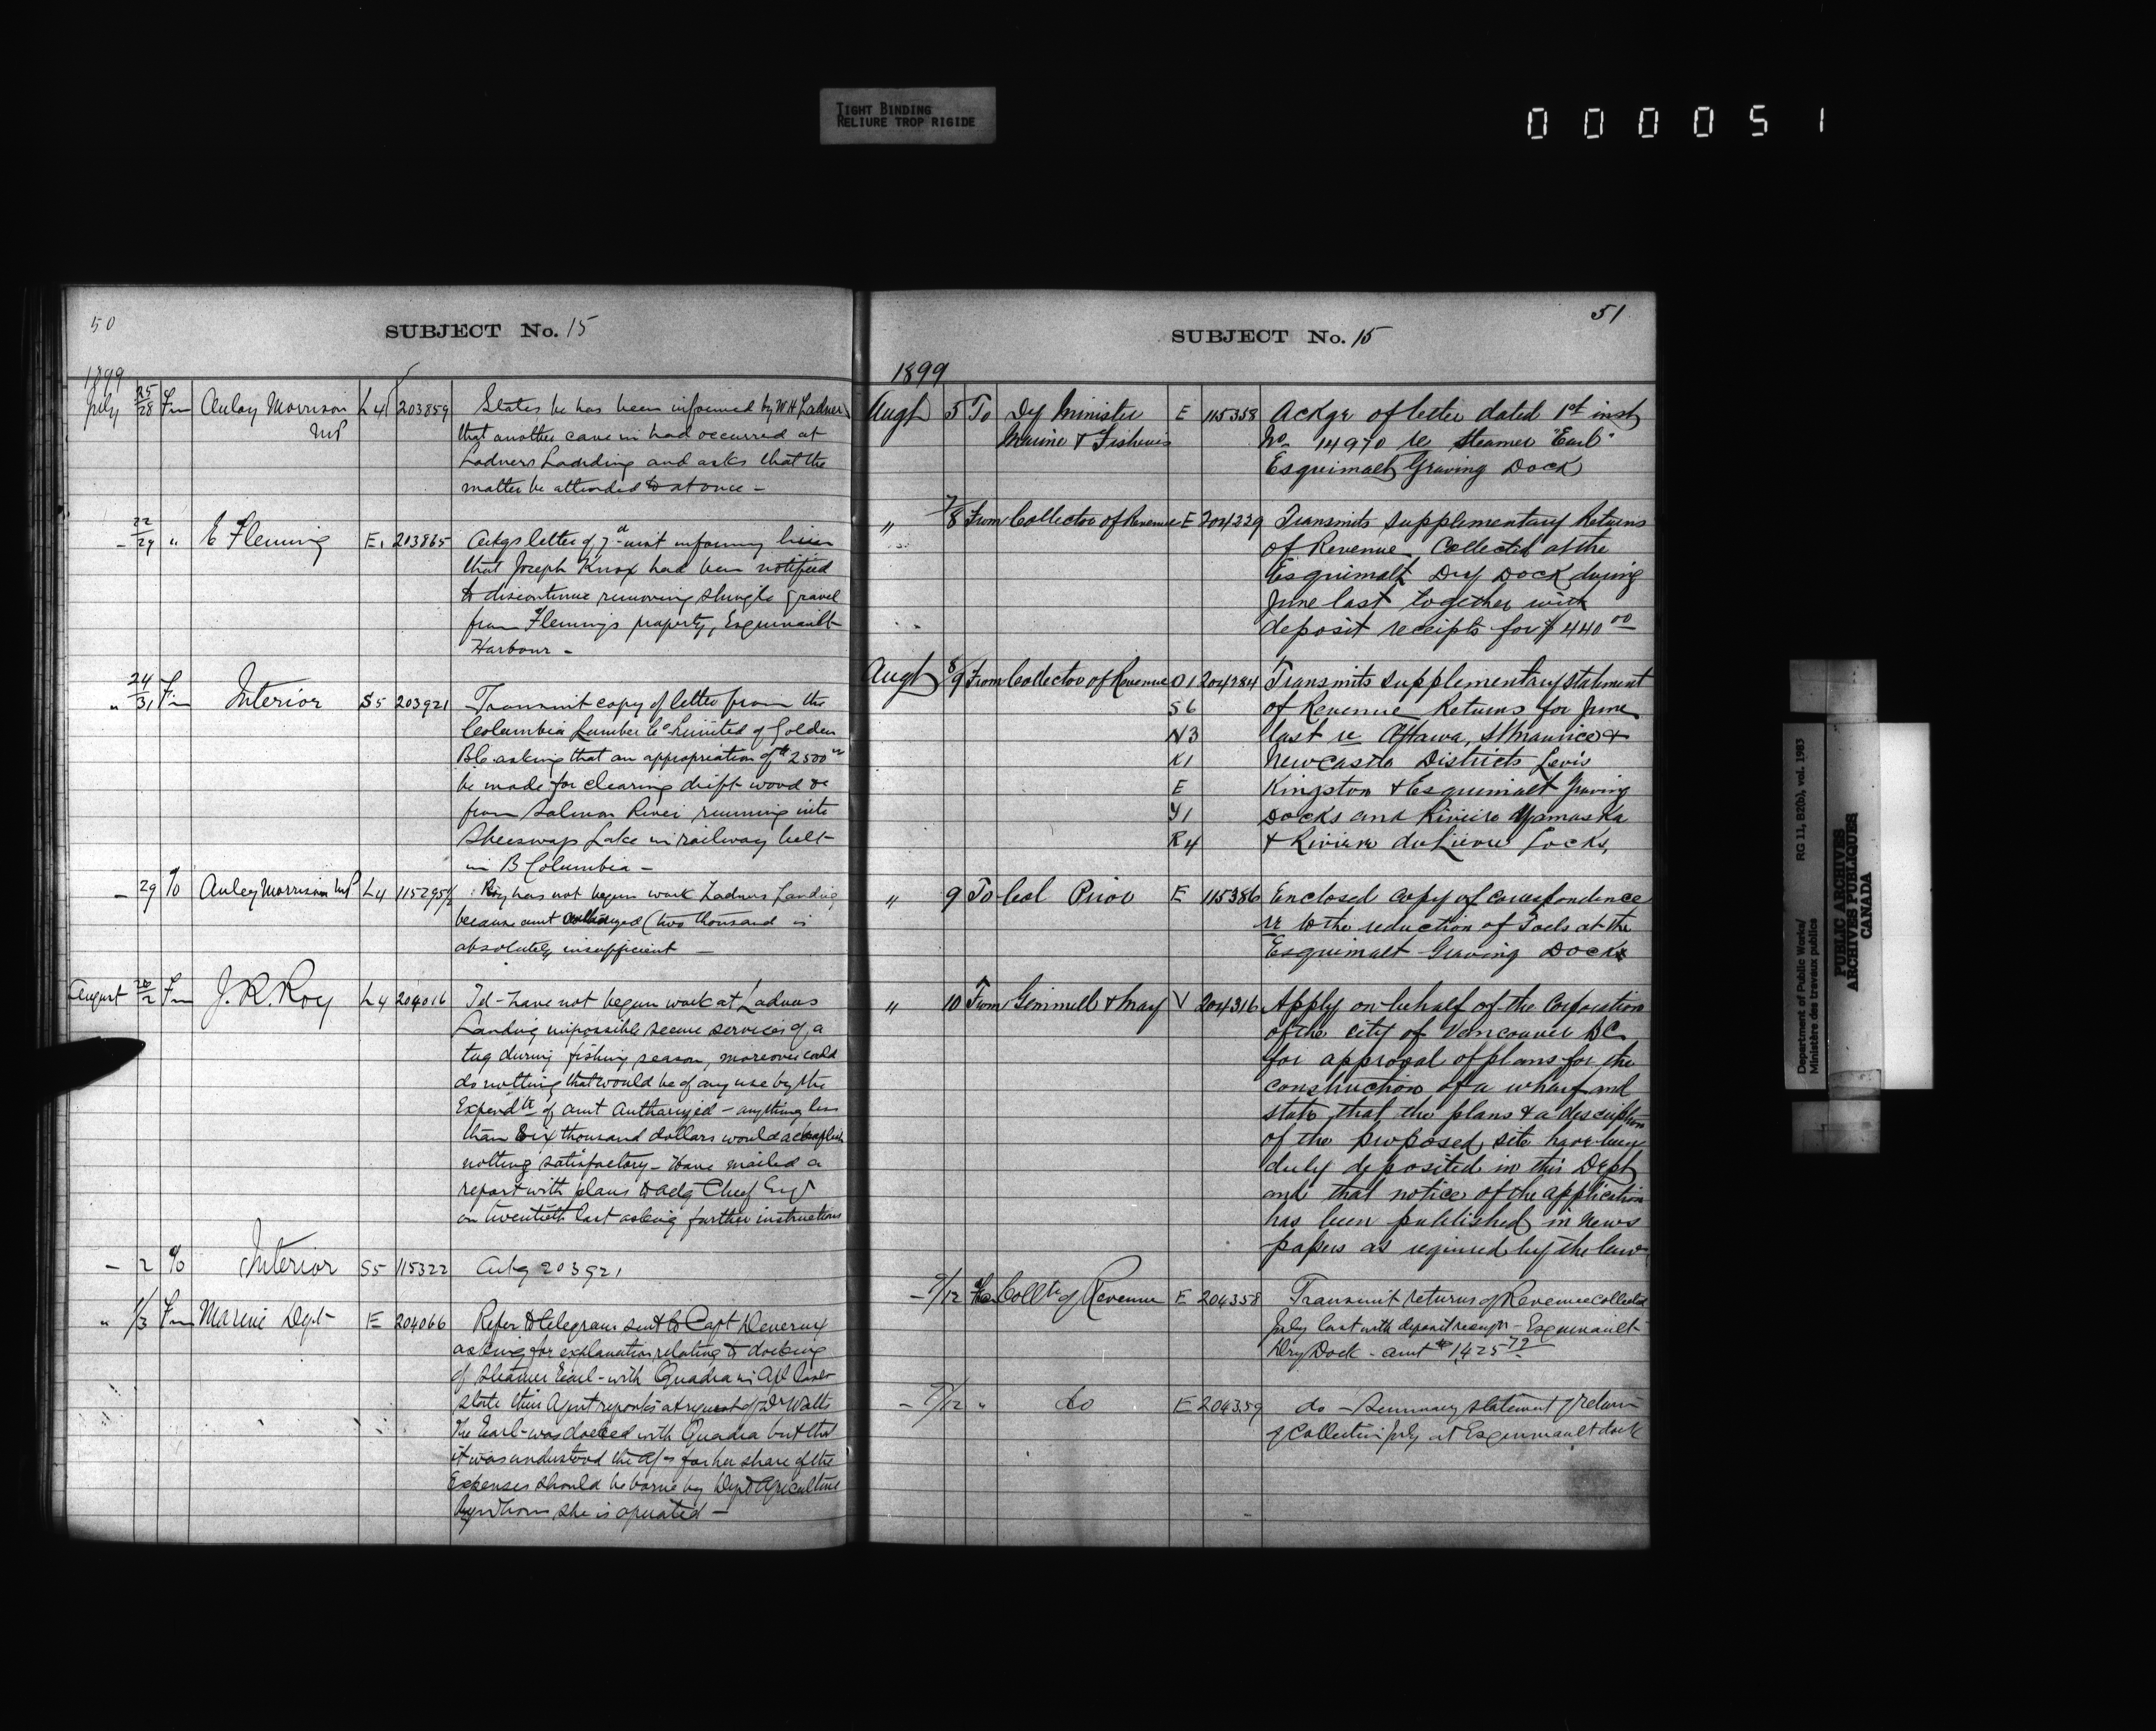 TIGHT BINDING
RELIURE TROP RIGIDE
000051
50
SUBJECT No. 15
1899
July 25/28 Fm Aulay Morrison L4 203859 States he has been informed by W H Ladner
MP that another cave in had occurred at
Ladners Landing and asks that the
matter be attended to at once -
- 22/29 " E Fleming E. 203865 Ackgs letter of 7th inst informing him
that Joseph Knox had been notified
to discontinue removing shingle & gravel
from Flemings property, Esquimault
Harbour -
" 24/31 Fm Interior S5 203921 Transmit copy of letter from the
Columbia Lumber Co Limited of Golden
B.C. asking that an appropriation of $2500 00
be made for clearing drift wood &c
from Salmon River running into
Sheeswap Lake in railway belt
in B Columbia -
- 29 To Auley Morrison MP L4 115295½ Roy has not begun work Ladners Landing
because amt authorized (two thousand is
absolutely insufficient -
August 26/2 Fm J. R. Roy L4 204016 Tel - have not begun work at Ladners
Landing impossible secure services of a
tug during fishing season, moreover could
do nothing that would be of any use by the
Expendre of amt authorized - anything less
than Six thousand dollars would accomplish
nothing satisfactory - Have mailed a
report with plans to actg Chief Engr
on twentieth last asking further instructions
- 2 To Interior S5 115322 Ackg 203921
" 1/3 Fm Marine Dept E 204066 Refer to telegram sent to Capt Devereux
asking for explanation relating to docking
of steamer Earl - with Quadra in Apl last
state their Agent reports at request of Dr Watts
the Earl - was docked with Quadra but that
it was understood the a/c for her share of the
Expenses should be borne by Dept Agriculture
by whom she is operated -
51
SUBJECT No. 15
1899
Augt 5 To Dy Minister E 115358 Ackgr of letter dated 1st inst
Marine & Fisheries No 14970 re steamer "Earl"
Esquimalt Graving Dock
" 7/8 From Collector of Revenue E 204229 Transmits supplementary Returns
of Revenue Collected at the
Esquimalt Dry Dock during
June last together with
deposit receipts for $440 00
Augt 8/9 From Collector of Revenue O1 204284 Transmits supplementary statement
S6 of Revenue Returns for June
N3 last re Ottawa, St Maurice &
K1 Newcastle Districts Levis
E Kingston & Esquimalt Graving
Y1 Docks and Riviere Yamaska
R4 & Riviere du Lievre Locks,
" 9 To Col Prior E 115386 Enclosed copy of correspondence
re to the reduction of Tolls at the
Esquimalt Graving Dock
" 10 From Gemmell & May V 204316 Apply on behalf of the Corporation
of the city of Vancouver BC
for approval of plans for the
construction of a wharf and
state that the plans & a description
of the proposed site have been
duly deposited in this Dept
and that notice of the application
has been published in News
papers as required by the law
- 9/12 Fm Collr of Revenue E 204358 Transmit returns of Revenue collected
July last with deposit receipt - Esquimault
Dry Dock - amt $1,425 79
- 9/12 " do E 204359 do - Summary statement of return
of Collection July at Esquimault dock
Department of Public Works/
Ministère des travaux publics
RG 11, B2(b), vol. 1983
PUBLIC ARCHIVES
ARCHIVES PUBLIQUES
CANADA